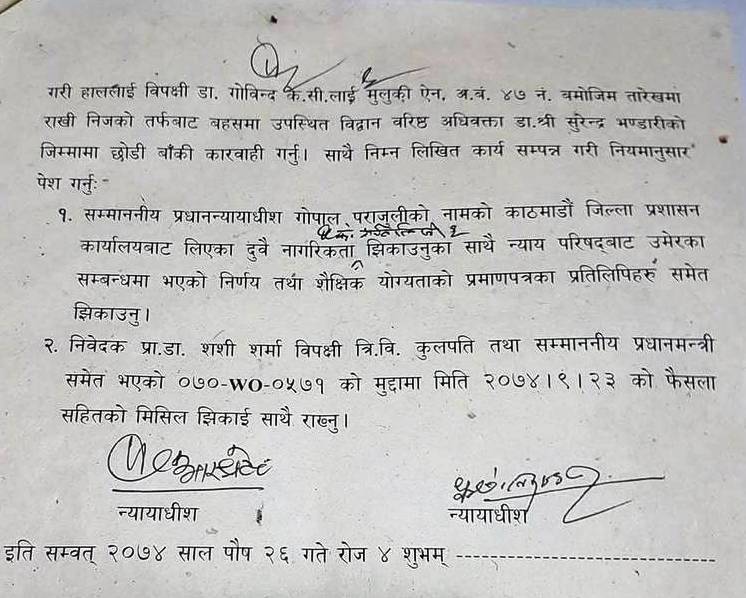 गरी हाललाई विपक्षी डा. गोविन्द के.सी.लाई मुलुकी ऐन, अ.वं. ४७ नं. वमोजिम तारेखमा
राखी निजको तर्फबाट बहसमा उपस्थित विद्वान वरिष्ठ अधिवक्ता डा.श्री सुरेन्द्र भण्डारीको
जिम्मामा छोडी बाँकी कारवाही गर्नु। साथै निम्न लिखित कार्य सम्पन्न गरी नियमानुसार
पेश गर्नुः-
१. सम्माननीय प्रधानन्यायाधीश गोपाल पराजुलीको नामको काठमाडौं जिल्ला प्रशासन
कार्यालयबाट लिएका दुवै नागरिकता झिकाउनुका साथै न्याय परिषद्बाट उमेरका
सम्बन्धमा भएको निर्णय तथा शैक्षिक योग्यताको प्रमाणपत्रका प्रतिलिपिहरु समेत
झिकाउनु।
२. निवेदक प्रा.डा. शशी शर्मा विपक्षी त्रि.वि. कुलपति तथा सम्माननीय प्रधानमन्त्री
समेत भएको ०७०-WO-०५७१ को मुद्दामा मिति २०७४।९।२३ को फैसला
सहितको मिसिल झिकाई साथै राख्नु।
न्यायाधीश न्यायाधीश
इति सम्वत् २०७४ साल पौष २६ गते रोज ४ शुभम् ------------------------------